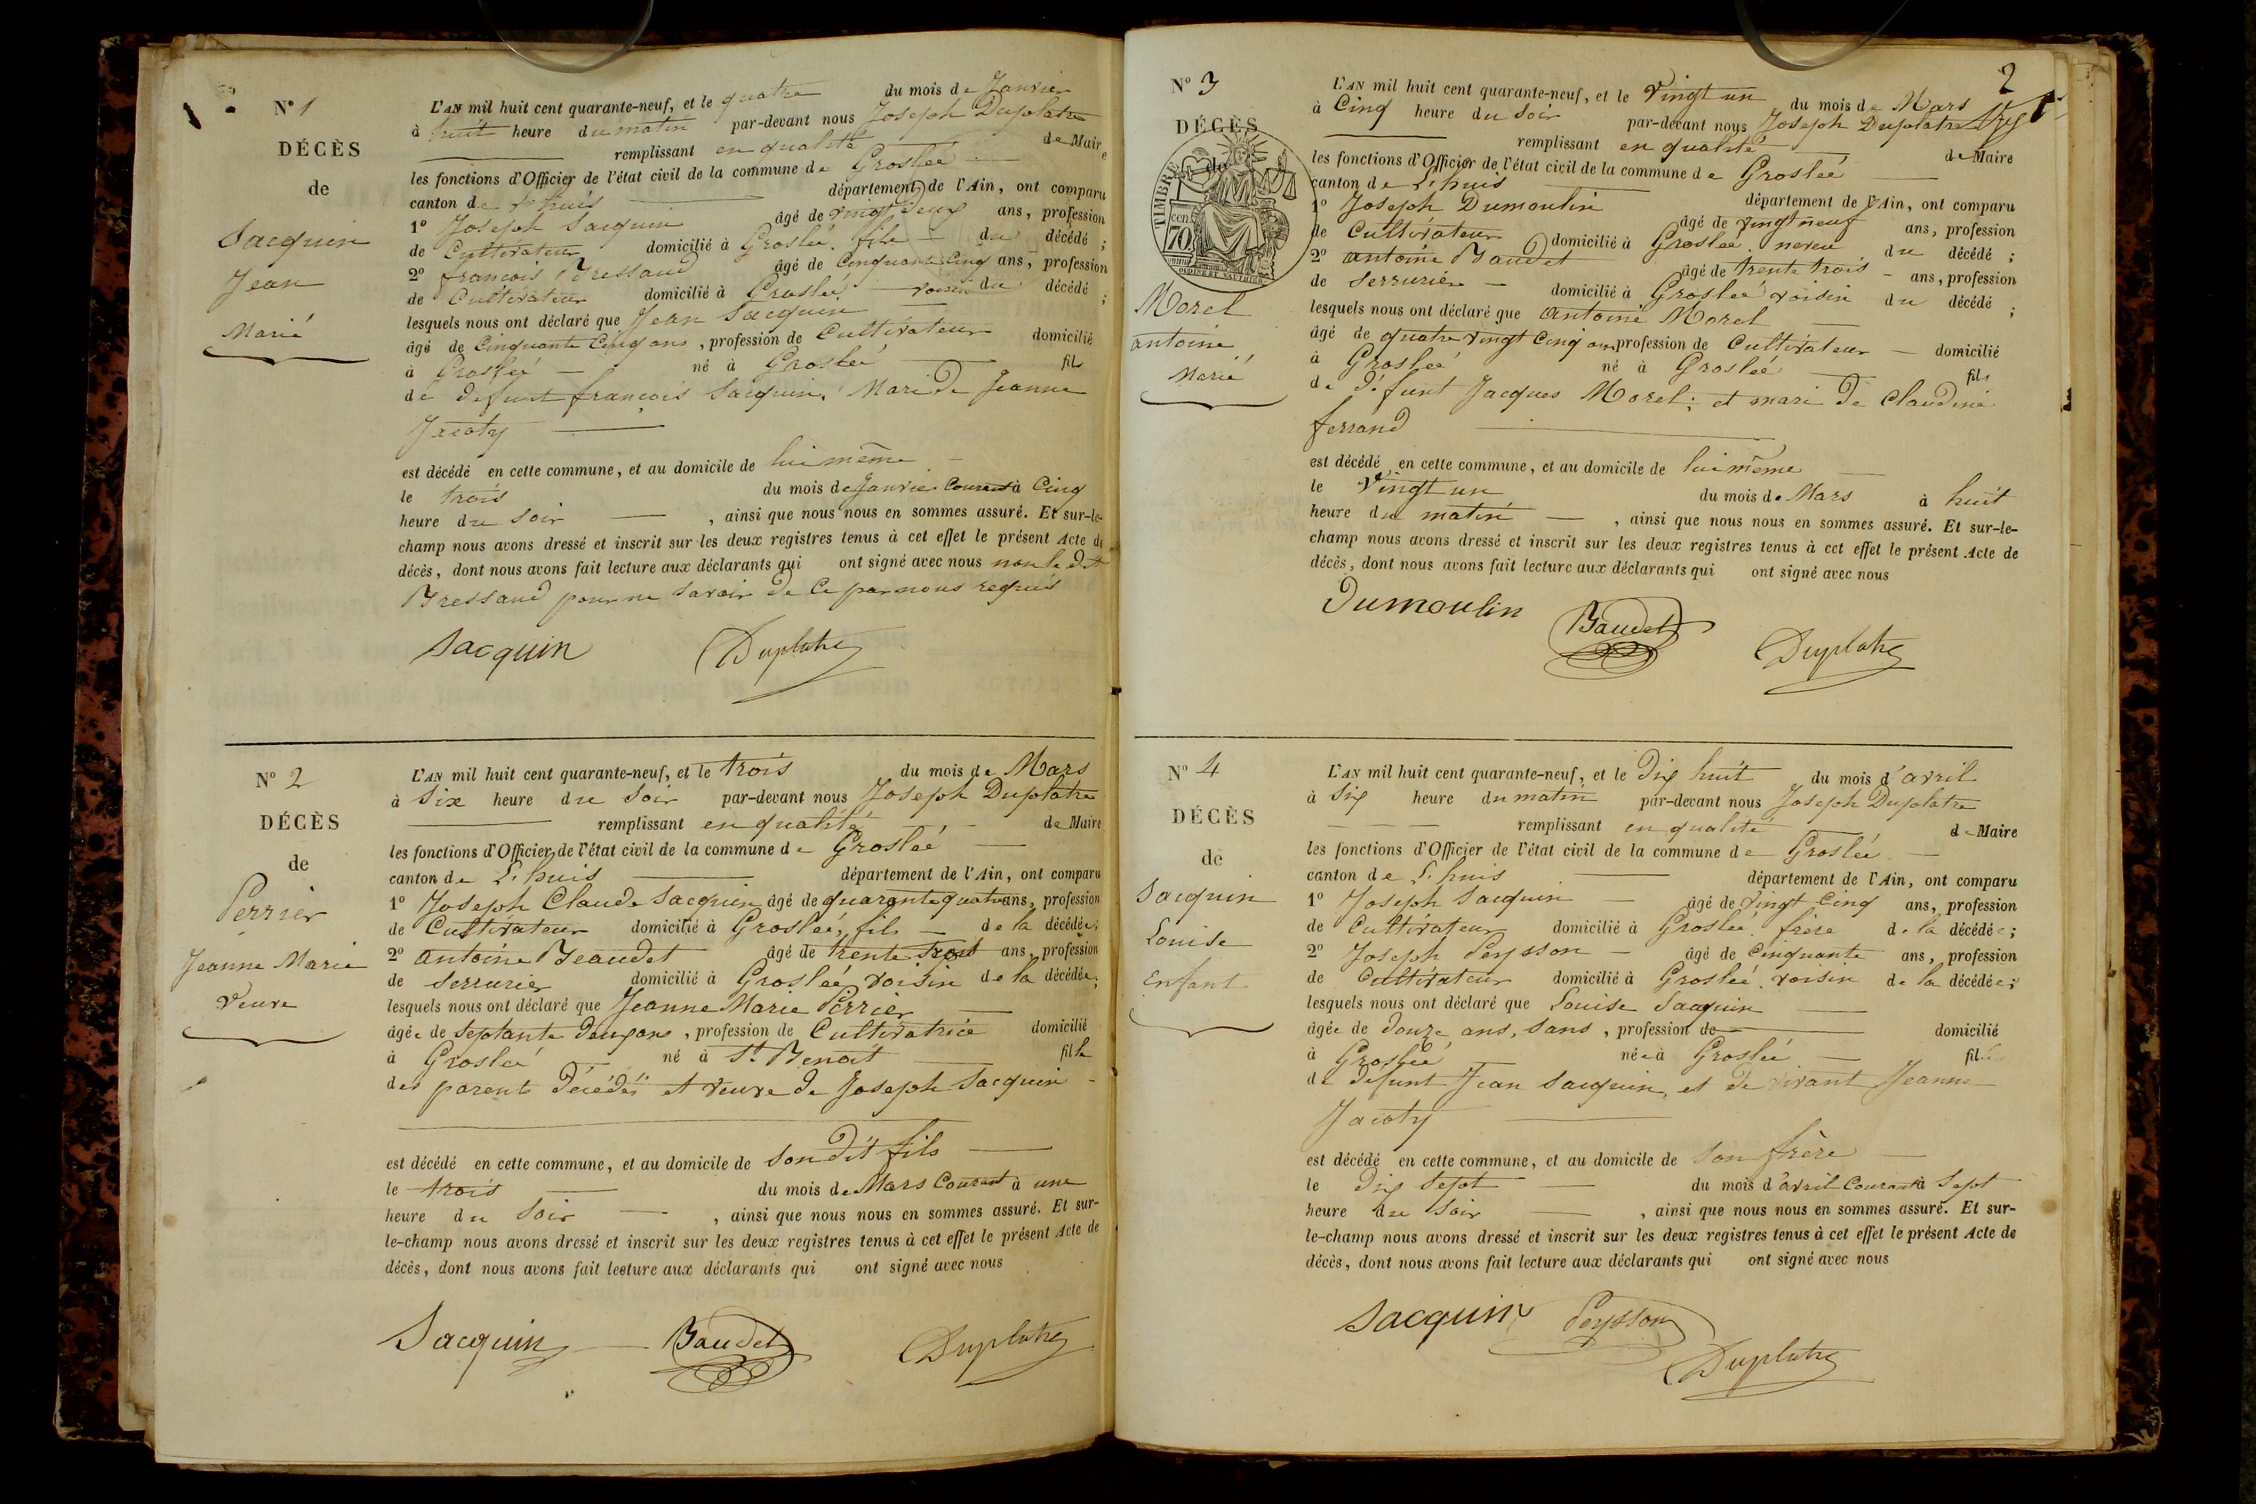 N° 1
DÉCÈS
de
Sacquin
Jean
Marié
L'AN mil huit cent quarante-neuf, et le quatre du mois de Janvier
à huit heure du matin par-devant nous Joseph Duplatre
remplissant en qualité de Maire
les fonctions d'Officier de l'état civil de la commune de Groslée
canton de L'huis département de l'Ain, ont comparu
1° Joseph Sacquin âgé de vingt deux ans, profession
de Cultivateur domicilié à Groslée, fils du décédé ;
2° francois Bressaud âgé de Cinquante Cinq ans, profession
de Cultivateur domicilié à Groslée voisin du décédé ;
lesquels nous ont déclaré que Jean Sacquin
âgé de Cinquante Cinq ans, profession de Cultivateur domicilié
à Groslée né à Groslée fils
de defunt francois Sacquin, Mari de Jeanne
Jacoty
est décédé en cette commune, et au domicile de lui même
le trois du mois de Janvier Courant à Cinq
heure du Soir , ainsi que nous nous en sommes assuré. Et sur-le-
champ nous avons dressé et inscrit sur les deux registres tenus à cet effet le présent Acte de
décès, dont nous avons fait lecture aux déclarants qui ont signé avec nous non le dit
Bressaud pour ne savoir de ce par nous requis
Sacquin Duplatre
N° 2
DÉCÈS
de
Perrier
Jeanne Marie
veuve
L'AN mil huit cent quarante-neuf, et le trois du mois de Mars
à Six heure du Soir par-devant nous Joseph Duplatre
remplissant en qualité de Maire
les fonctions d'Officier de l'état civil de la commune de Groslée
canton de L'huis département de l'Ain, ont comparu
1° Joseph Claude Sacquin âgé de quarante quatre ans, profession
de Cultivateur domicilié à Groslée, fils de la décédée;
2° antoine Beaudet âgé de trente trois ans, profession
de Serrurier domicilié à Groslée voisin de la décédée;
lesquels nous ont déclaré que Jeanne Marie Perrier
âgée de Septante deux ans, profession de Cultivatrice domicilié
à Groslée né à St Benoit fille
des parents décédés et veuve de Joseph Sacquin
est décédé en cette commune, et au domicile de Son dit fils
le trois du mois de Mars Courant à une
heure du Soir , ainsi que nous nous en sommes assuré. Et sur-
le-champ nous avons dressé et inscrit sur les deux registres tenus à cet effet le présent Acte de
décès, dont nous avons fait lecture aux déclarants qui ont signé avec nous
Sacquin Baudet Duplatre
2
N° 3
DÉCÈS
de
TIMBRE
70 cen
Morel
antoine
Marié
L'AN mil huit cent quarante-neuf, et le Vingt un du mois de Mars
à Cinq heure du Soir par-devant nous Joseph Duplatre
remplissant en qualité de Maire
les fonctions d'Officier de l'état civil de la commune de Groslée
canton de L'huis département de l'Ain, ont comparu
1° Joseph Dumoulin âgé de vingt neuf ans, profession
de Cultivateur domicilié à Groslée, neveu du décédé ;
2° antoine Baudet âgé de trente trois ans, profession
de Serrurier domicilié à Groslée voisin du décédé ;
lesquels nous ont déclaré que antoine Morel
âgé de quatre vingt Cinq ans profession de Cultivateur domicilié
à Groslée né à Groslée fils
de défunt Jacques Morel; et mari de Claudine
ferrand
est décédé en cette commune, et au domicile de lui même
le Vingt un du mois de Mars à huit
heure du matin , ainsi que nous nous en sommes assuré. Et sur-le-
champ nous avons dressé et inscrit sur les deux registres tenus à cet effet le présent Acte de
décès, dont nous avons fait lecture aux déclarants qui ont signé avec nous
Dumoulin Baudet Duplatre
N° 4
DÉCÈS
de
Sacquin
Louise
Enfant
L'AN mil huit cent quarante-neuf, et le Dix huit du mois d'avril
à Six heure du matin par-devant nous Joseph Duplatre
remplissant en qualité de Maire
les fonctions d'Officier de l'état civil de la commune de Groslée
canton de L'huis département de l'Ain, ont comparu
1° Joseph Sacquin âgé de vingt Cinq ans, profession
de Cultivateur domicilié à Groslée, frère de la décédée;
2° Joseph Peysson âgé de Cinquante ans, profession
de Cultivateur domicilié à Groslée, voisin de la décédée;
lesquels nous ont déclaré que Louise Sacquin
âgée de douze ans, sans, profession de domicilié
à Groslée née à Groslée fil
de défunt Jean Sacquin, et de vivant Jeanne
Jacoty
est décédé en cette commune, et au domicile de Son frère
le Dix Sept du mois d'avril Courant à Sept
heure du Soir , ainsi que nous nous en sommes assuré. Et sur-
le-champ nous avons dressé et inscrit sur les deux registres tenus à cet effet le présent Acte de
décès, dont nous avons fait lecture aux déclarants qui ont signé avec nous
Sacquin Peysson
Duplatre